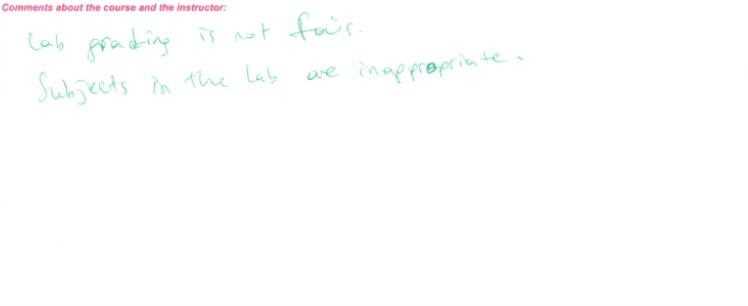 Comments about the course and the instructor:
Lab grading is not fair.
Subjects in the lab are inappropriate.